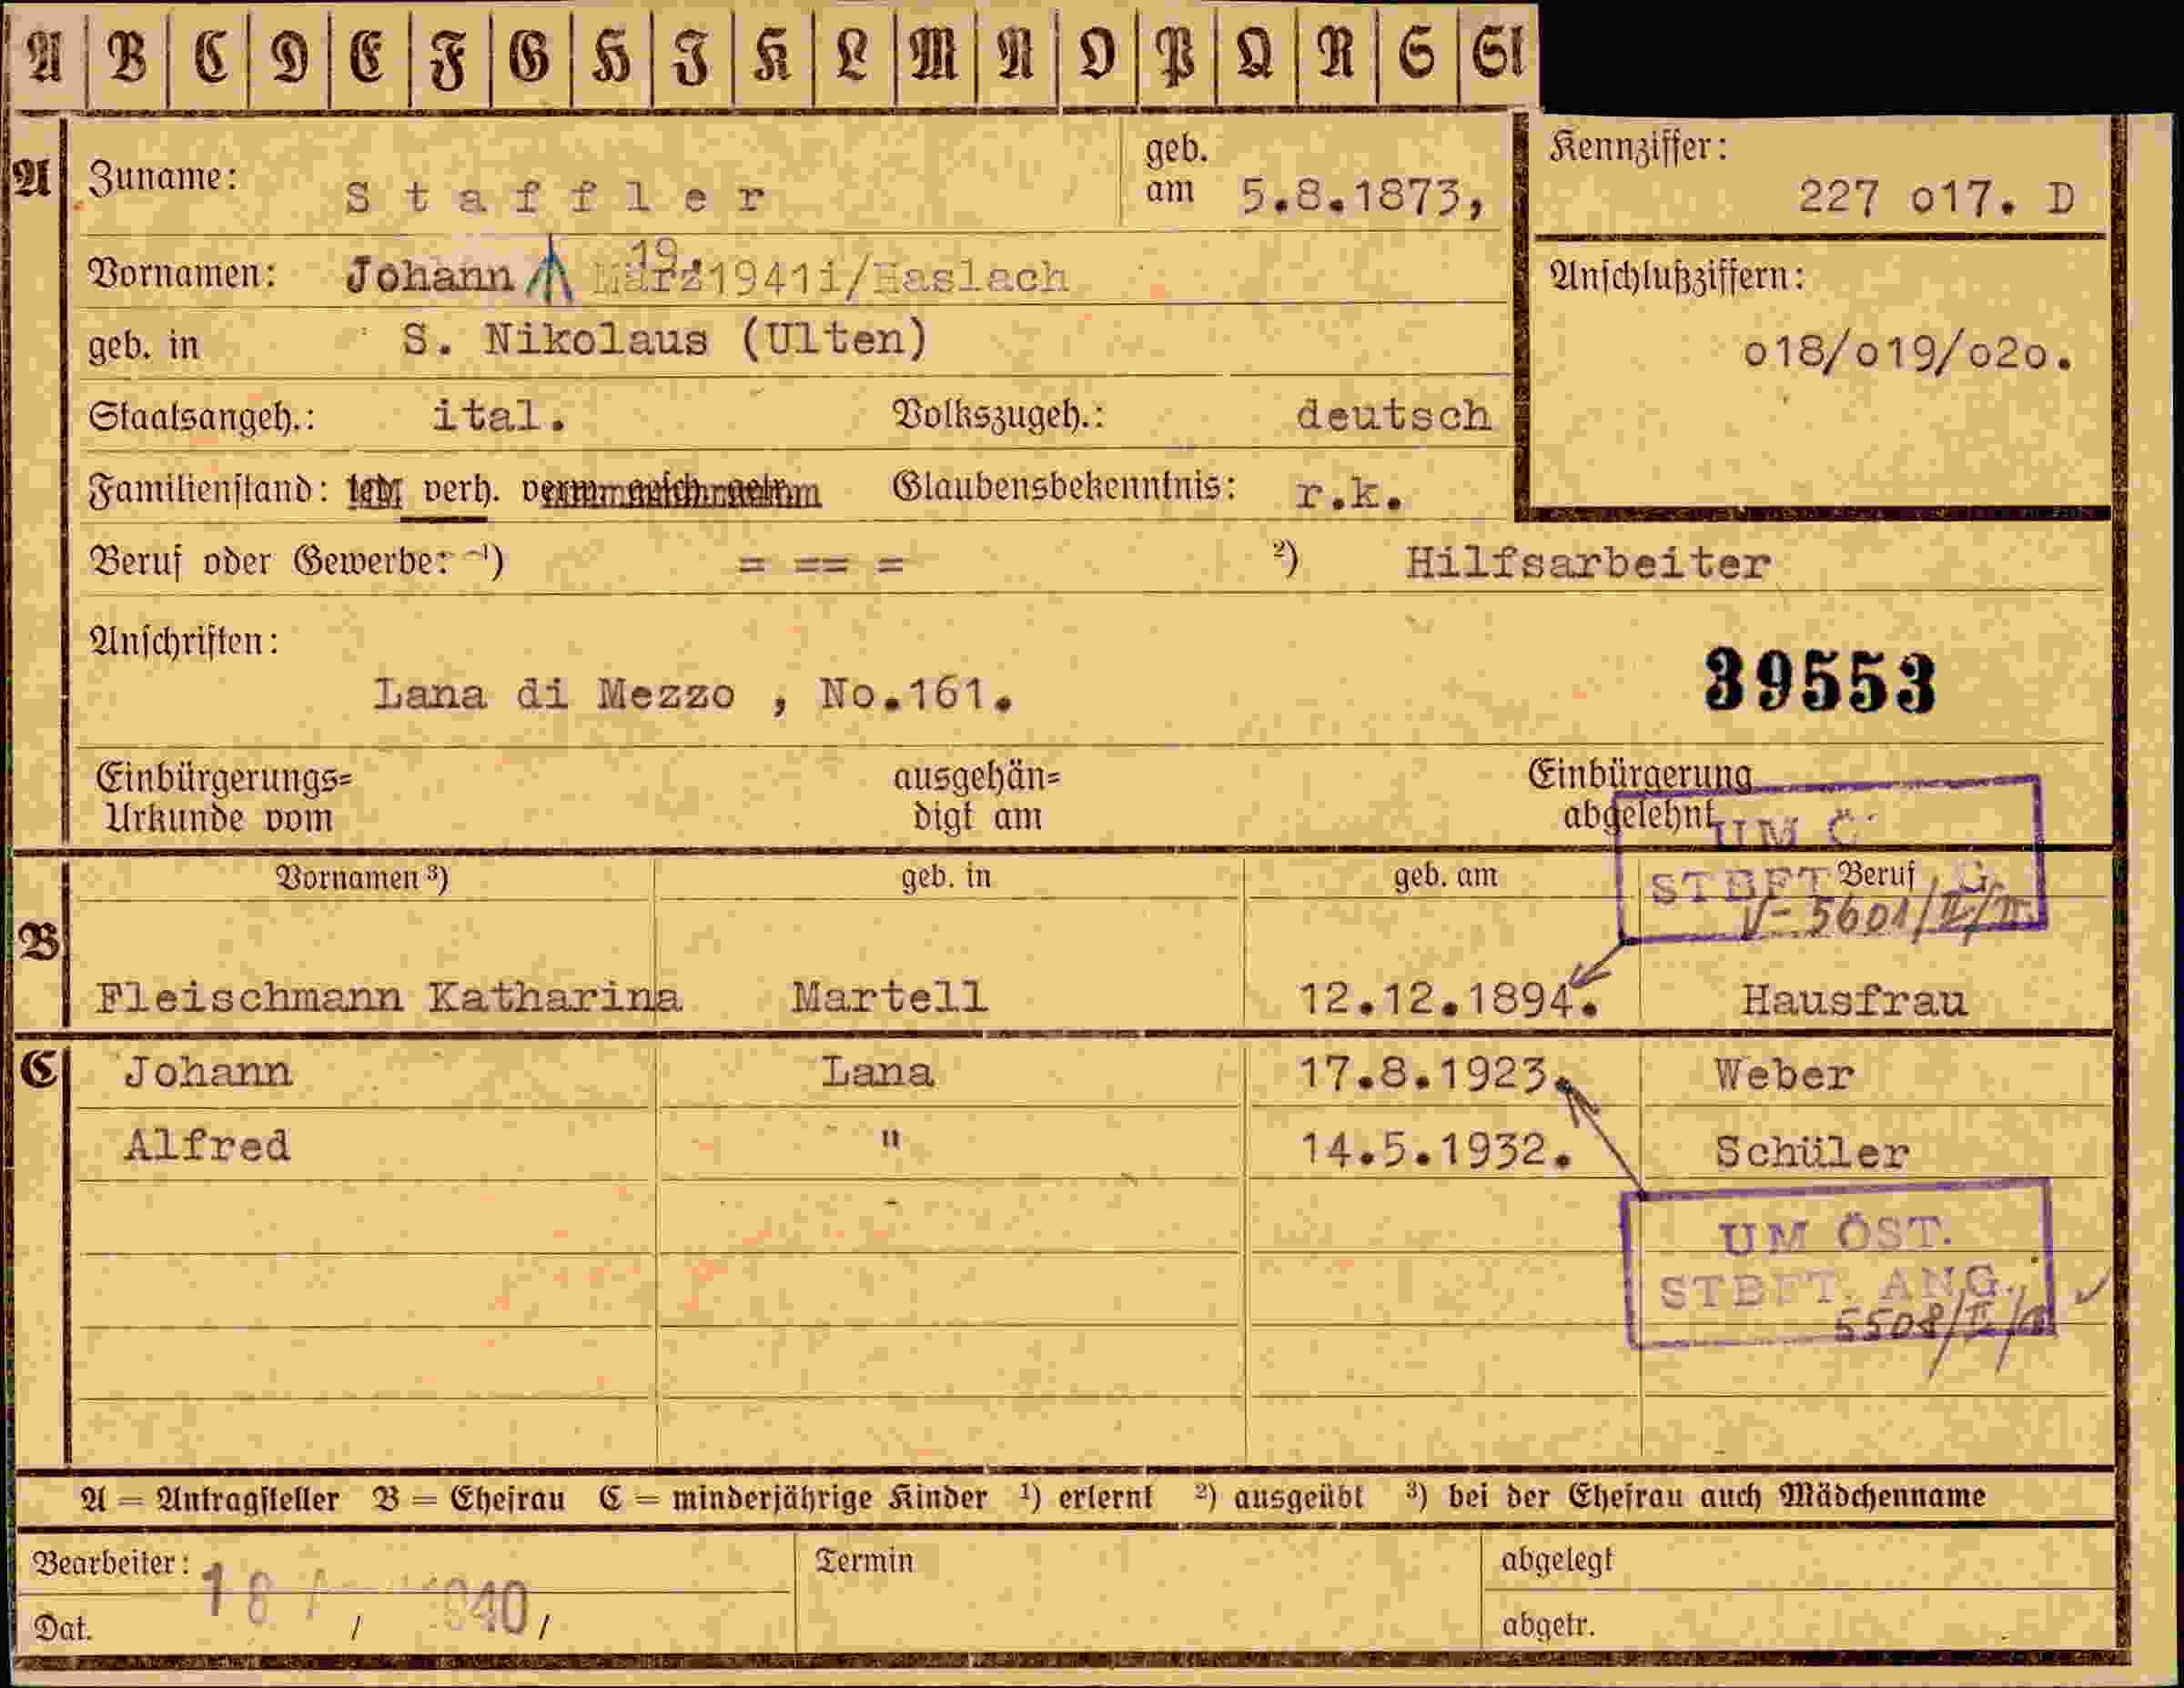 A B C D E F G H I K L M N O P Q R S St
A Zuname: Staffler geb. am 5.8.1873,
Kennziffer: 227 o17. D
Vornamen: Johann 19. März 1941 i/Haslach
Anschlußziffern: o18/o19/o2o.
geb. in S. Nikolaus (Ulten)
Staatsangeh.: ital. Volkszugeh.: deutsch
Familienstand: verh. Glaubensbekenntnis: r.k.
Beruf oder Gewerbe: ¹) = == = ²) Hilfsarbeiter
Anschriften:
39553
Lana di Mezzo , No.161.
Einbürgerungs= Urkunde vom ausgehän= digt am Einbürgerung abgelehnt
UM Ö
Vornamen ³) geb. in geb. am Beruf
STBFT G.
5601/II/
B Fleischmann Katharina Martell 12.12.1894. Hausfrau
C Johann Lana 17.8.1923. Weber
Alfred " 14.5.1932. Schüler
UM ÖST.
STBFT. ANG.
5508/II/
A = Antragsteller B = Ehefrau C = minderjährige Kinder ¹) erlernt ²) ausgeübt ³) bei der Ehefrau auch Mädchenname
Bearbeiter: Termin abgelegt
18 1940
Dat. / / abgetr.